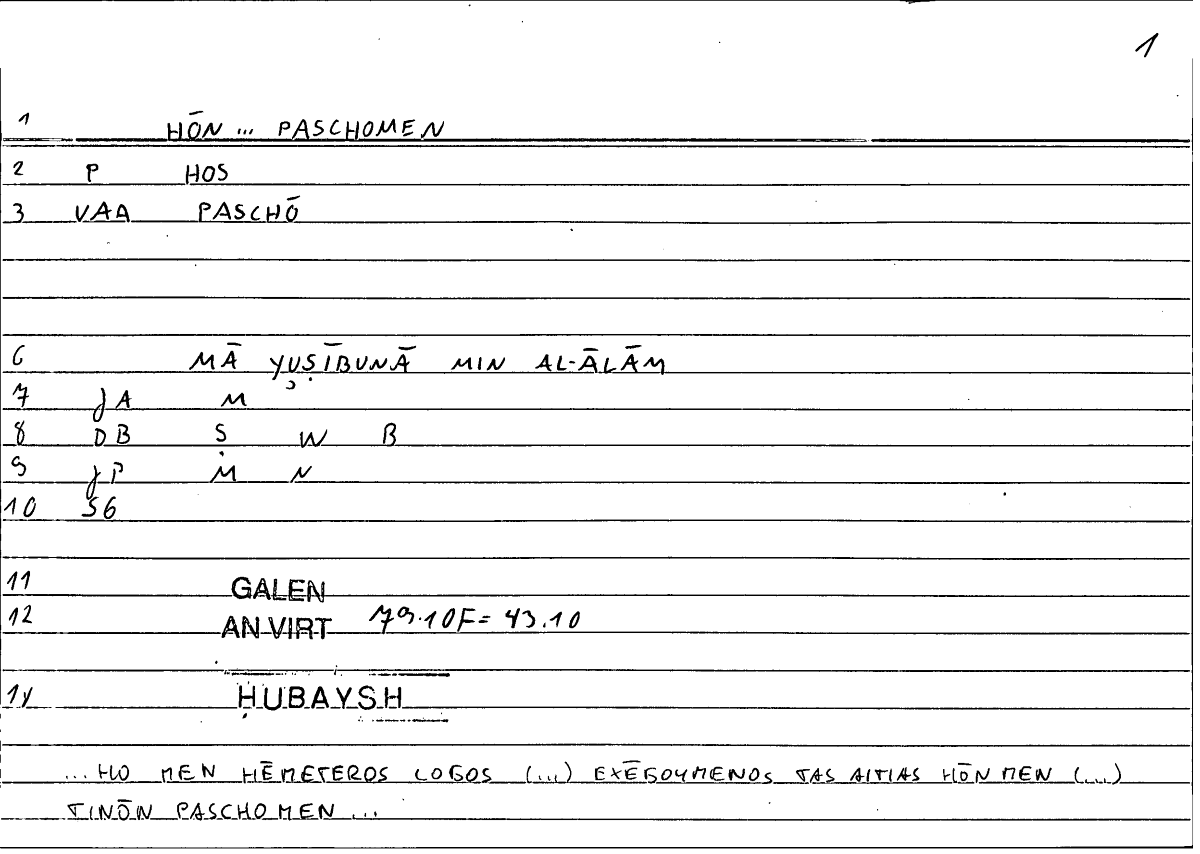 1
1 HŌN ... PASCHOMEN
2 P HOS
3 VAA PASCHŌ
6 MĀ YUṢĪBUNĀ MIN AL-ĀLĀM
7 JA M
8 DB Ṣ W B
9 JP M N
10 S6
11 GALEN
12 AN VIRT 79.10F = 43.10
14 ḤUBAYSH
... HO MEN HĒMETEROS LOGOS (...) EXĒGOYMENOS TAS AITIAS HŌN MEN (...)
TINŌN PASCHOMEN ...